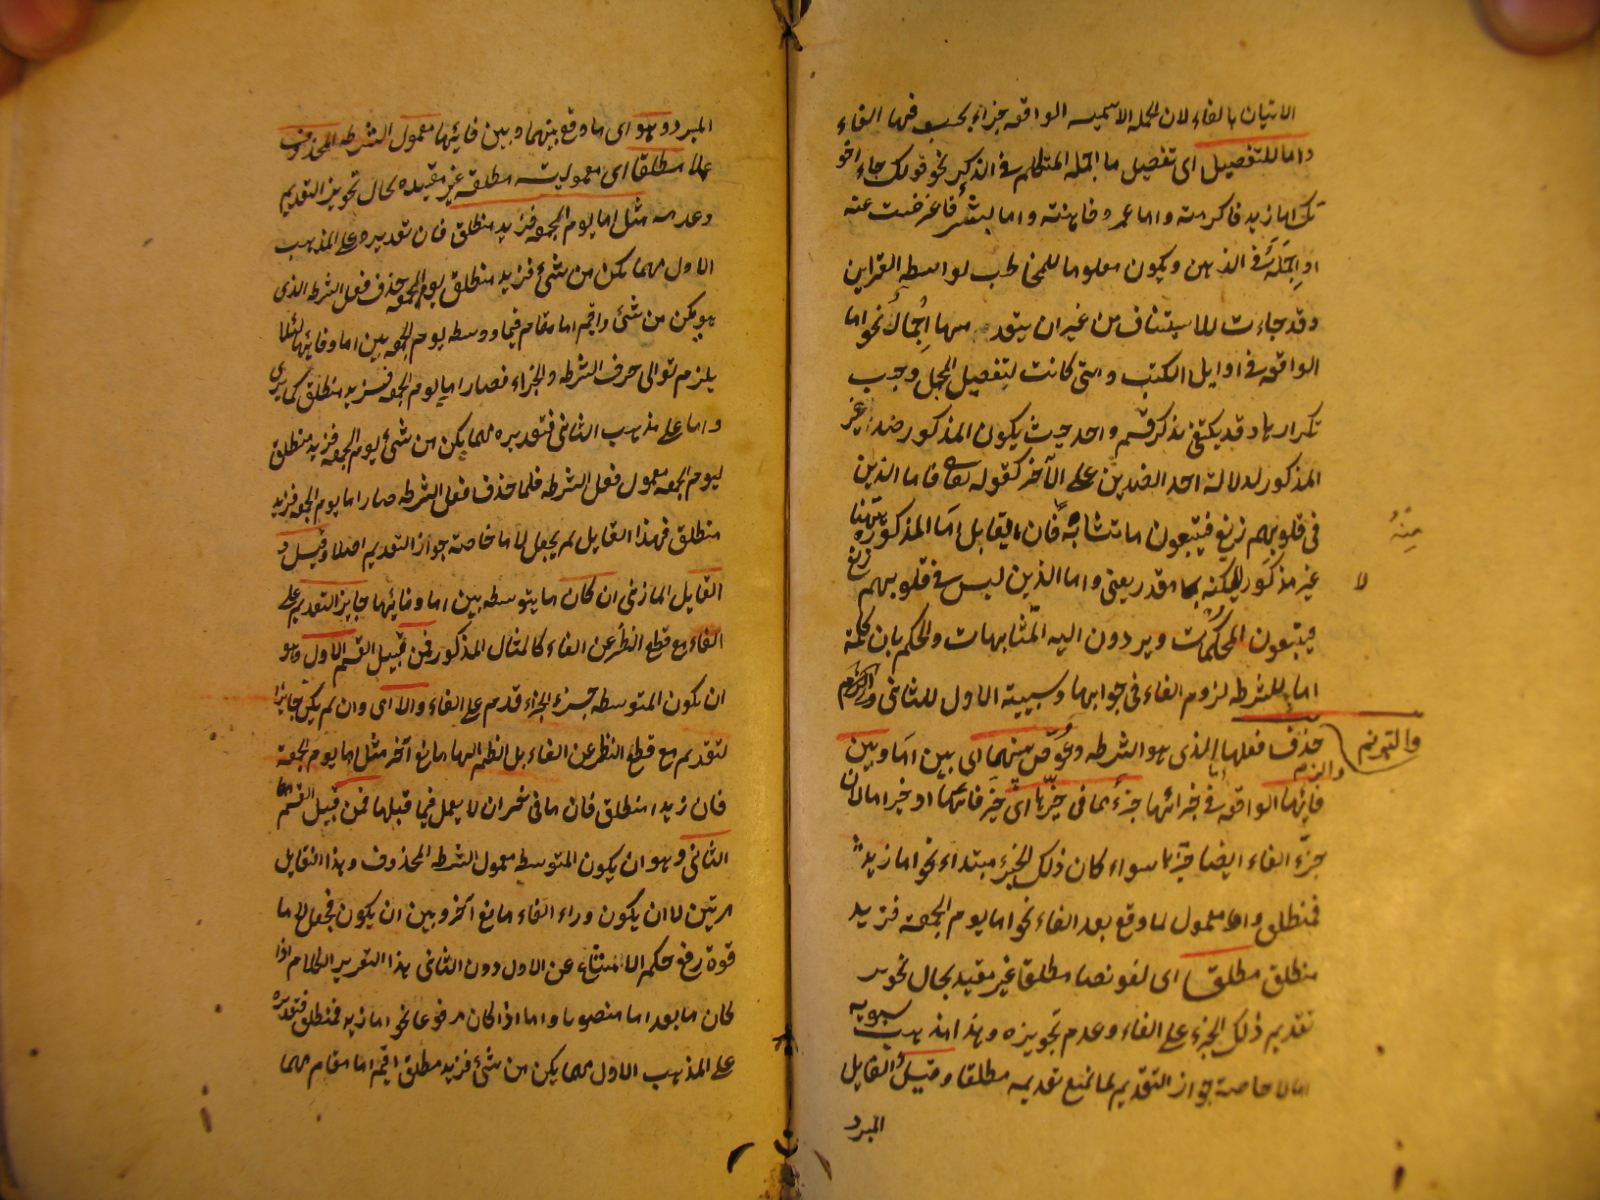 الاتيان بالفاء لان الجملة الاسمية الواقعة جزاء يجب فيها الفاء
واما للتفصيل اى تفصيل ما اجمله المتكلم فى الذكر نحو قولك جاء اخو
تك اما زيد فاكرمته واما عمرو فاهنته واما بشر فاعرضت عنه
او اجمله فى الذهن ويكون معلوما للمخاطب بواسطة القراين
وقد جاءت للاستيناف من غير ان يتقدمها اجمال نحو اما
الواقعة فى اوايل الكتب ومتى كانت لتفصيل المجمل وجب
تكرارها وقد يكتفى بذكر قسم واحد حيث يكون المذكور ضد غير
المذكور لدلالة احد الضدين على الآخر كقوله تعالى فاما الذين
فى قلوبهم زيغ فيتبعون ما تشابه فان ما يقابل اما المذكورة ههنا
غير مذكور لكنه مقدر يعنى واما الذين ليس فى قلوبهم زيغ
فيتبعون المحكمات ويردون اليه المتشابهات والحكم بان كلمة
اما للشرط لزوم الفاء فى جوابها وسببية الاول للثانى
والتزم
حذف فعلها الذى هو الشرط وعوض بينهما اى بين اما وبين
فائها الواقعة فى جزائها جزء مما فى حيزها اى حيز فائها او حيز اما لان
حيز الفاء ايضا حيزها سواء كان ذلك الجزء مبتداء نحو اما زيد
فمنطلق او معمولا لما وقع بعد الفاء نحو اما يوم الجمعة فزيد
منطلق مطلقا اى تعويضا مطلقا غير مقيد بحال تجويز
تقديم ذلك الجزء على الفاء وعدم تجويزه وهذا مذهب سيبويه
اما لا خاصة جواز التقديم لما يمنع تقديمه مطلقا وقيل القايل
المبرد
المبرد وهو اى ما وقع بينهما وبين فائها معمول الشرط المحذوف
مطلقا اى معمولية مطلقة غير مقيدة بحال تجويز التقديم
وعدمه مثل اما يوم الجمعة فزيد منطلق فان تقديره على المذهب
الاول مهما يكن من شئ فزيد منطلق يوم الجمعة حذف فعل الشرط الذى
هو يكن من شئ واقيم اما مقام مهما ووسط يوم الجمعة بين اما وفائها لئلا
يلزم توالى حرف الشرط والجزاء فصار اما يوم الجمعة فزيد منطلق كما ترى
واما على مذهب الثانى فتقديره مهما يكن من شئ يوم الجمعة فزيد منطلق
ليوم الجمعة معمول فعل الشرط فلما حذف فعل الشرط صار اما يوم الجمعة فزيد
منطلق فهذا القايل لم يجعل لاما خاصة جواز التقديم اصلا وقيل و
القايل المازنى ان كان ما يتوسط بين اما وفائها جايز التقديم على
الفاء مع قطع النظر عن الفاء كالمثال المذكور فمن قبيل القسم الاول وهو
ان يكون المتوسط جزء الجزاء قدم على الفاء والا اى وان لم يكن جايز
لتقديم مع قطع النظر عن الفاء بل انظم اليها مانع آخر مثل اما يوم الجمعة
فان زيدا منطلق فان ما فى خبر ان لا يعمل فيما قبلها فمن قبيل القسم
الثانى وهو ان يكون المتوسط معمول الشرط المحذوف وهذا القايل
بين ان لا يكون وراء الفاء مانع آخر وبين ان يكون فجعل لاما
قوة رفع حكم الامتناع عن الاول دون الثانى هذا تقرير الكلام اذا
كان ما بعد اما منصوبا واما اذا كان مرفوعا نحو اما زيد فمنطلق فتقديره
على المذهب الاول مهما يكن من شئ فزيد منطلق اقيم اما مقام مهما